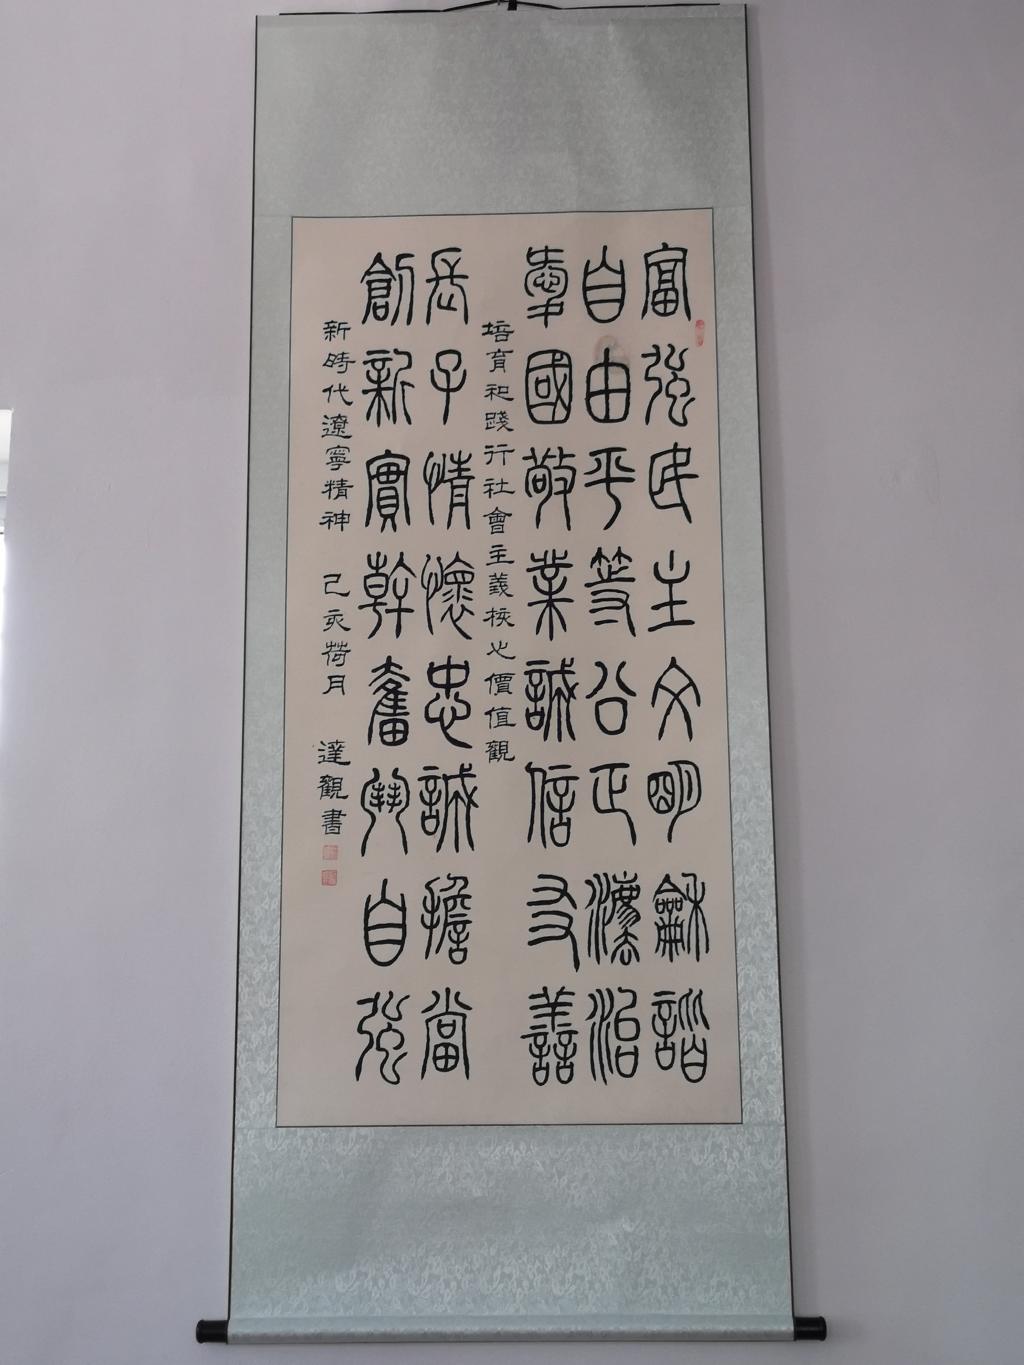 富強民主文明龢諧
自由平等公正灋治
愛國敬業誠信友善
培育和踐行社會主義核心價值觀
長子情懷忠誠擔當
創新實幹奮興自強
新時代遼寧精神 己亥荷月 達觀書